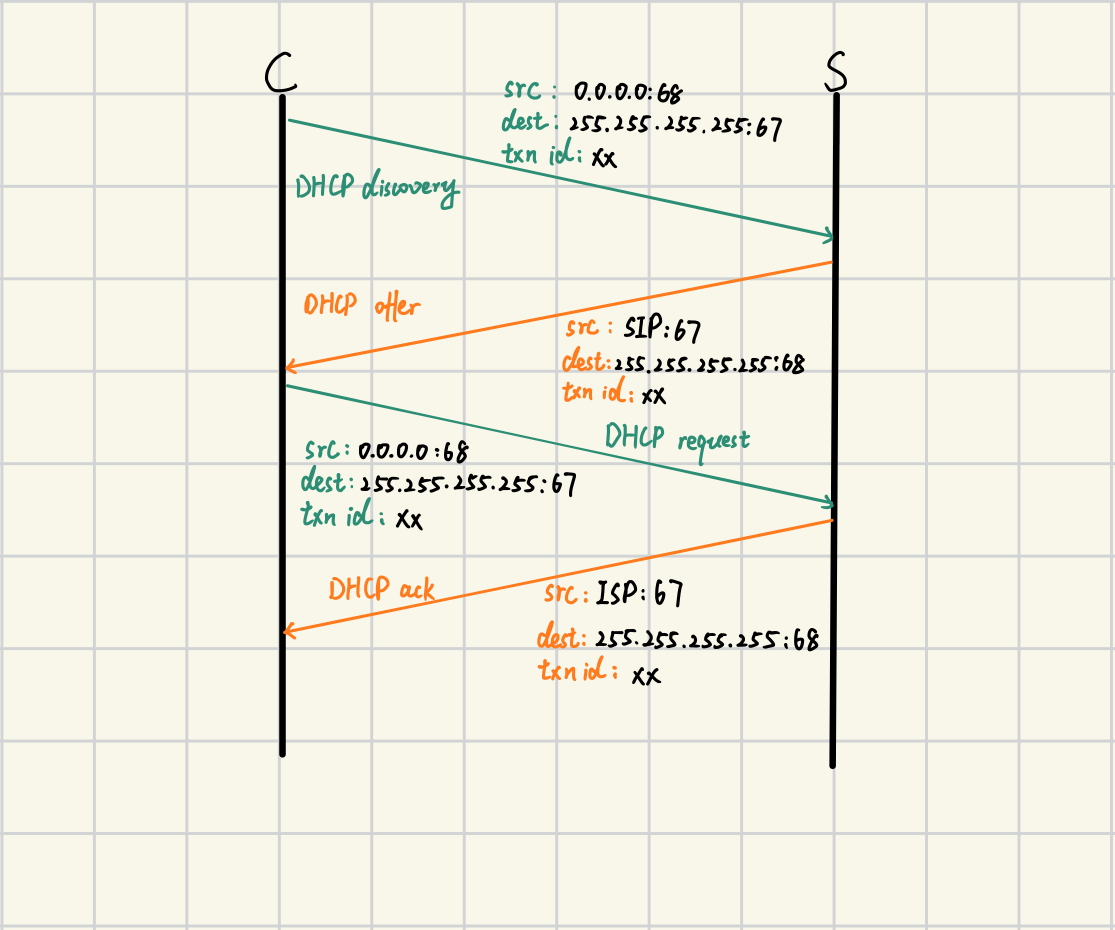 C
S
src: 0.0.0.0:68
dest: 255.255.255.255:67
txn id: xx
DHCP discovery
DHCP offer
src: SIP:67
dest: 255.255.255.255:68
txn id: xx
DHCP request
src: 0.0.0.0:68
dest: 255.255.255.255:67
txn id: xx
DHCP ack
src: ISP:67
dest: 255.255.255.255:68
txn id: xx